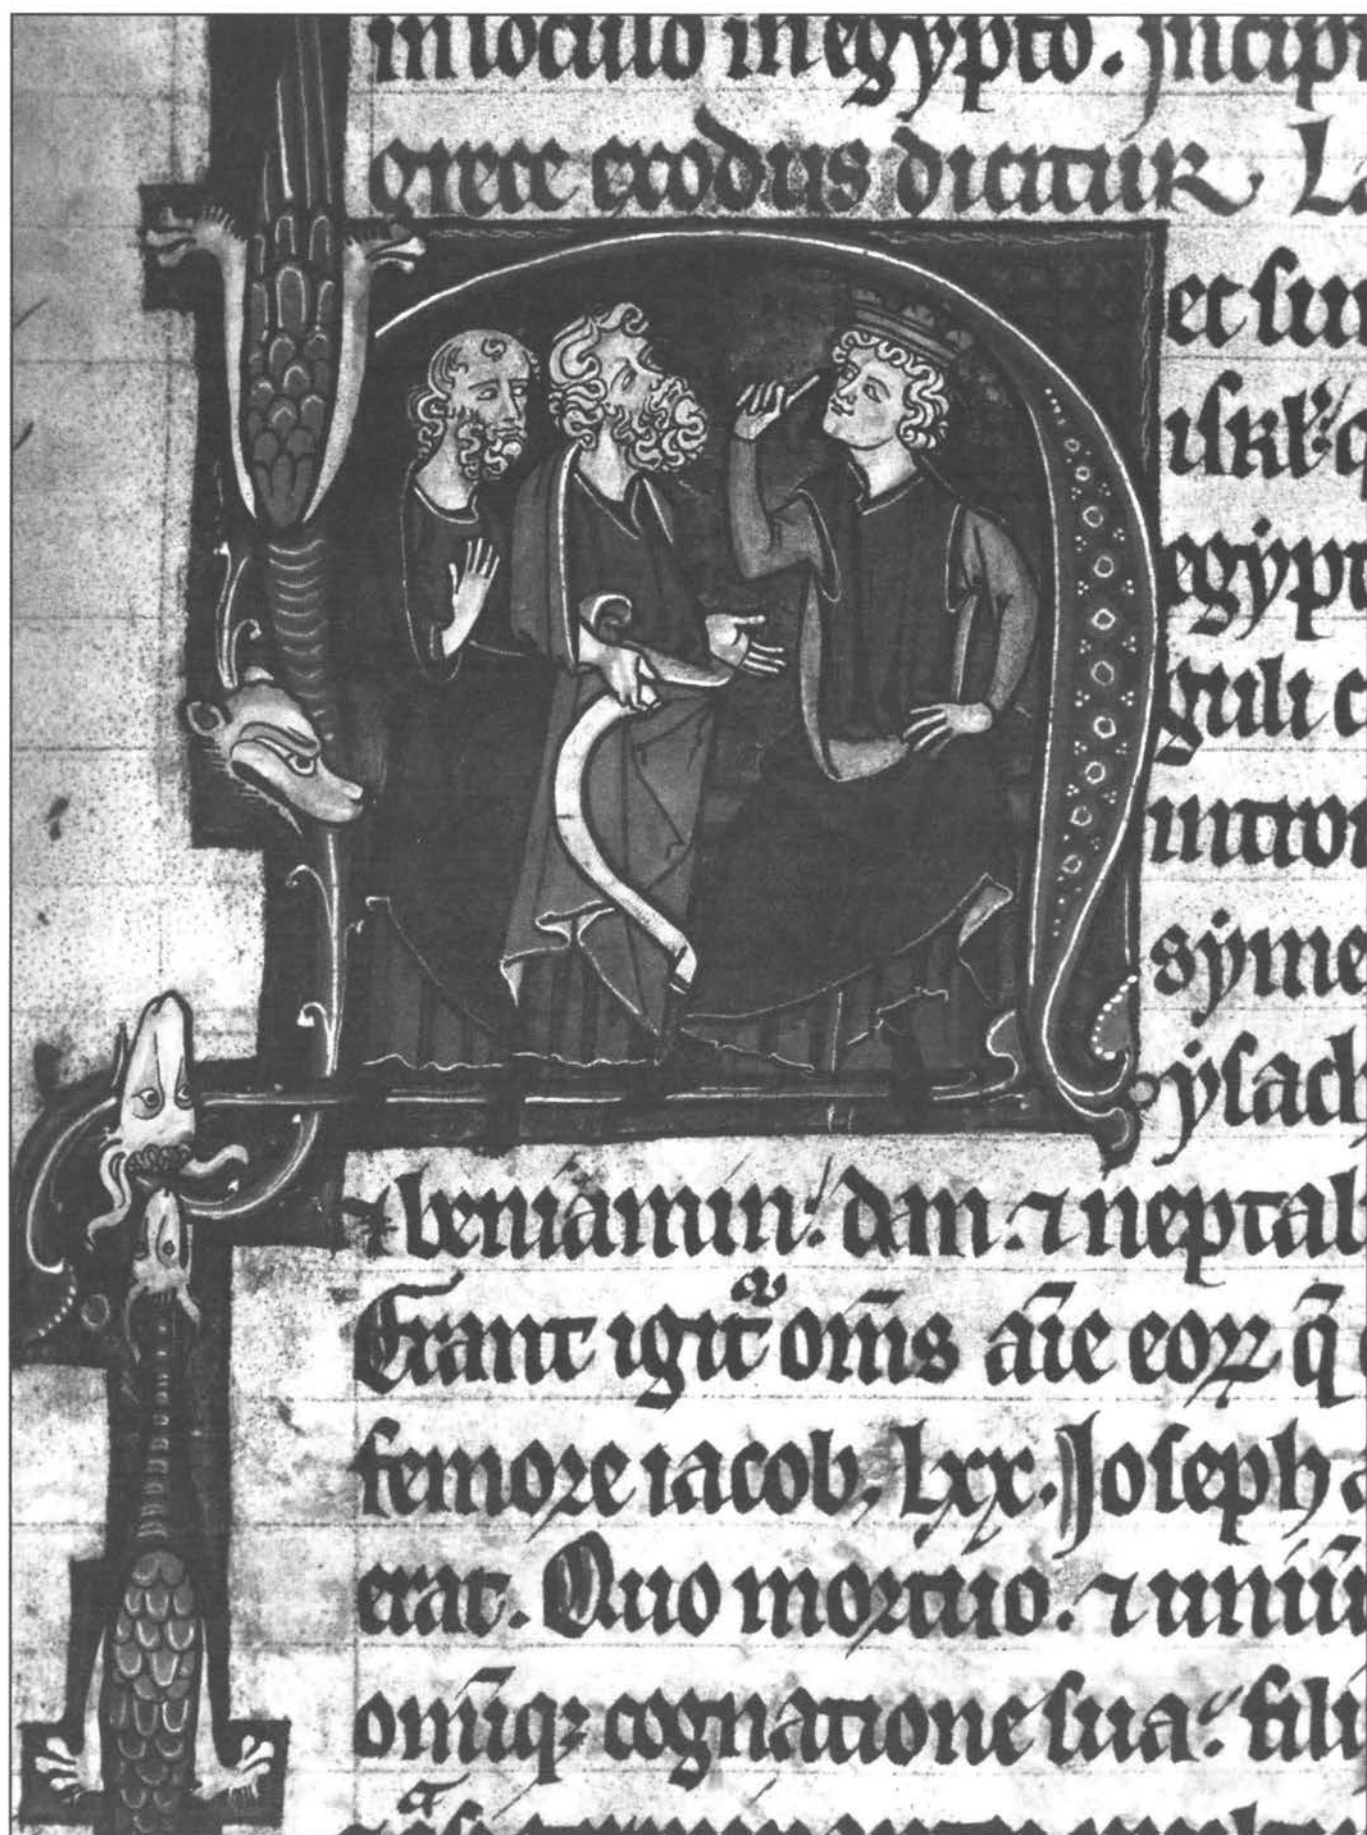 in loculo in egypto. incipi
grece exodus dicitur La
et su
isrl̕
egypt
guli
introi
syme
ysach
⁊ beniamin. dan. ⁊ neptal
Erant igit̄ om̄s aīe eoꝝ q̄
femore iacob. lxx. Joseph
erat. Quo mortuo. ⁊ uniū
omīq; cognatione sua. fili